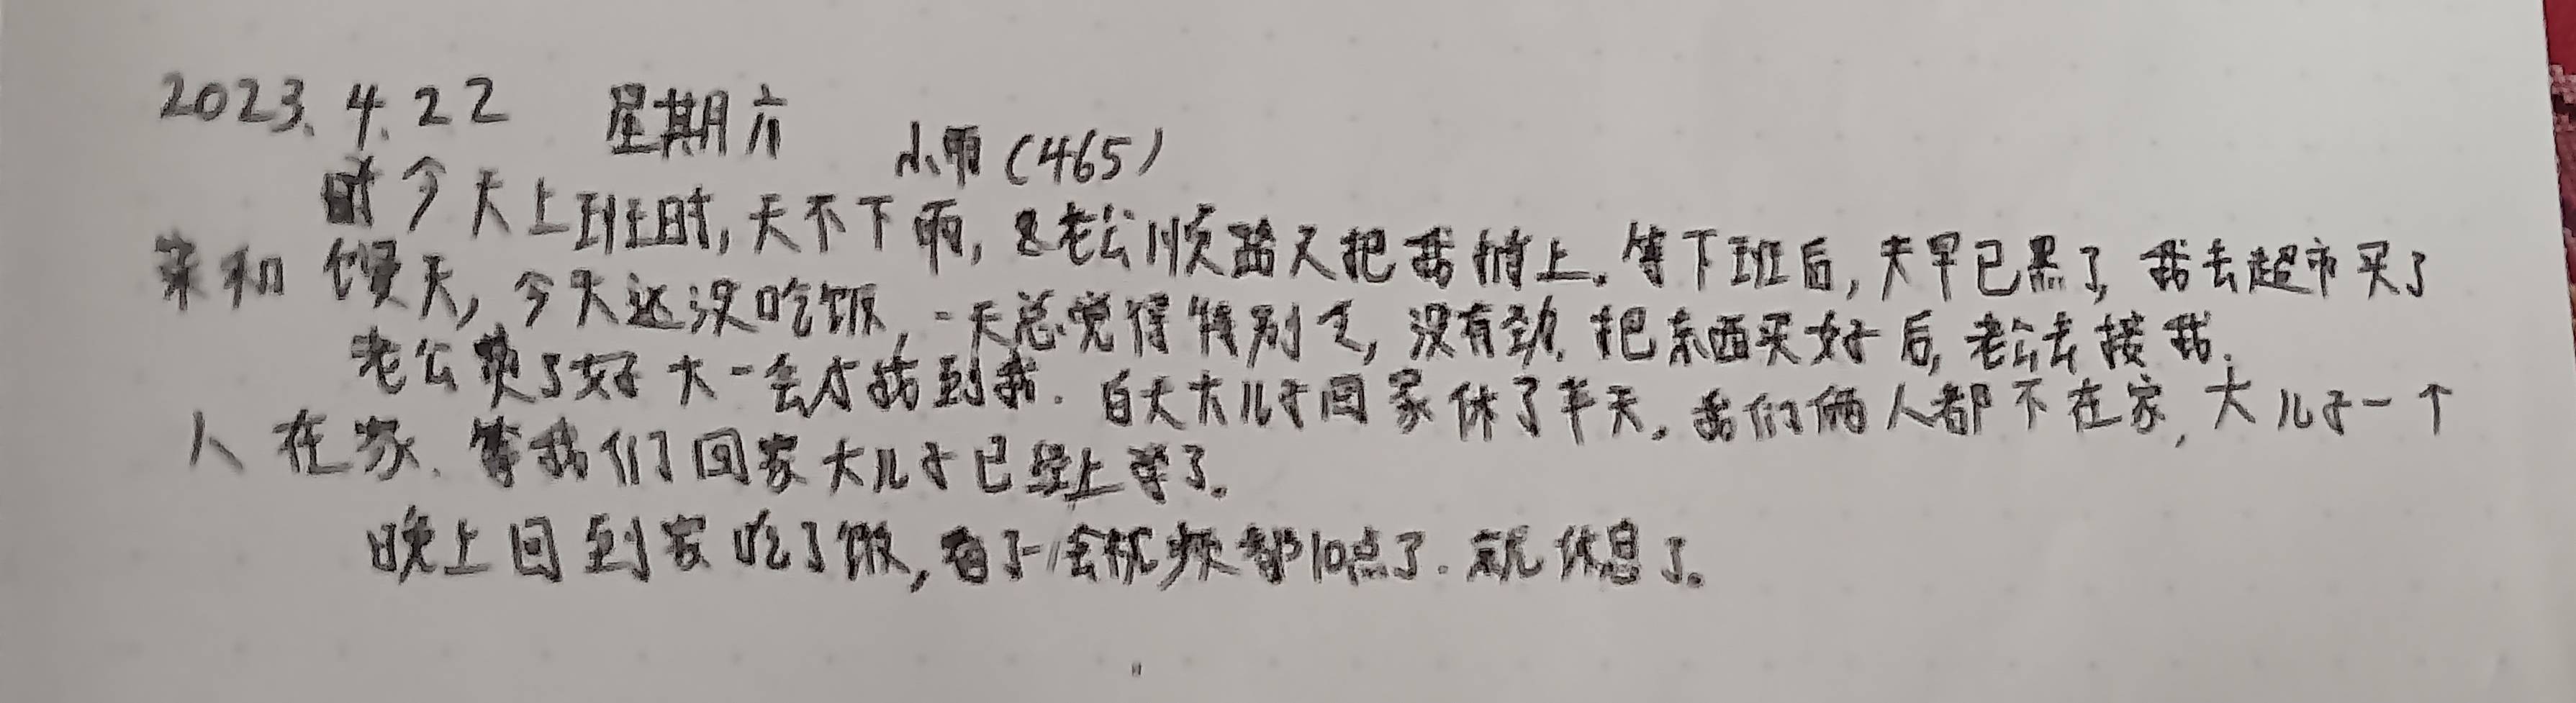 2023.4.22 星期六 小雨(465)
今天上班时,天不下雨,老公顺路又把我捎上。等下班后,天早已黑了,我去超市买了
菜和馍天,今天还没吃饭,一天总觉得特别乏,没有劲.把东西买好后,老公去接我.
老公费了好大一会才接到我.白天大儿子回家休了半天,我们俩人都不在家,大儿子一个
人在家.等我们回家大儿子已经上学了。
晚上回到家吃了饭,看了一会视频都10点了.就休息了。